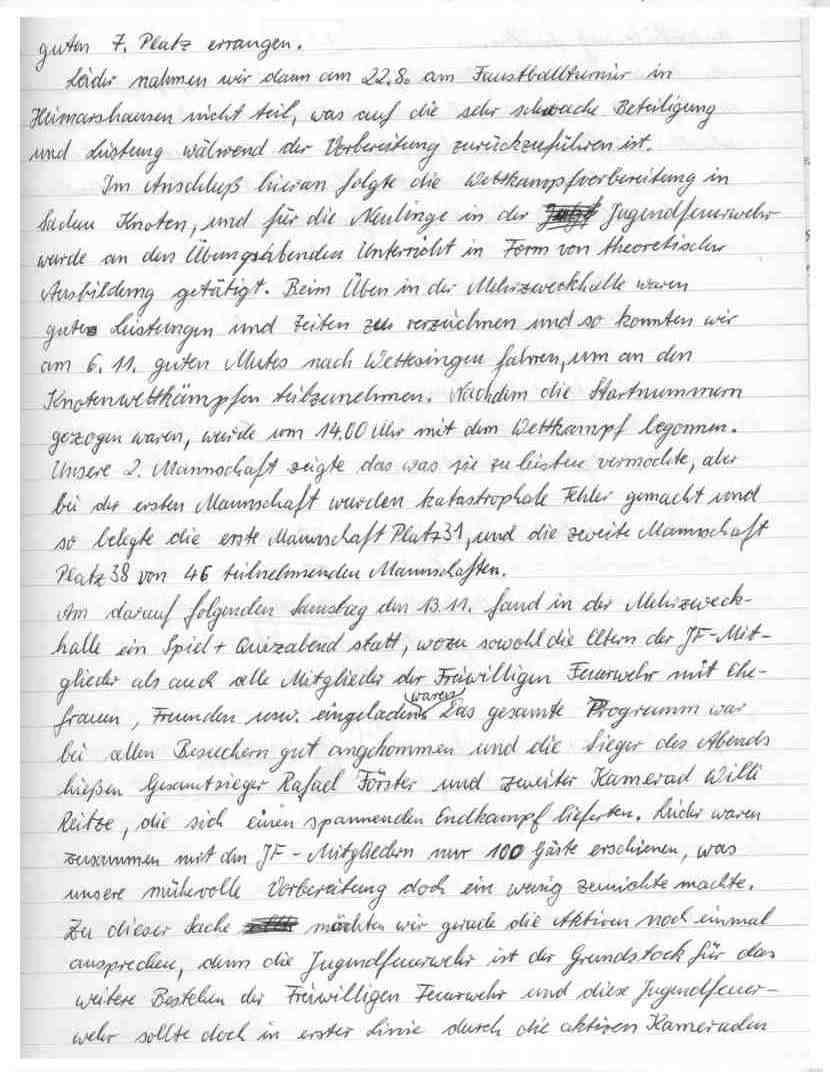 guten 7. Platz errangen.
Leider nahmen wir dann am 22.8. am Faustballturnier in
Heimarshausen nicht teil, was auf die sehr schwache Beteiligung
und Leistung während der Vorbereitung zurückzuführen ist.
Im Anschluß hieran folgte die Wettkampfvorbereitung in
Sachen Knoten, und für die Neulinge in der Jugendfeuerwehr
wurde an den Übungsabenden Unterricht in Form von theoretischer
Ausbildung getätigt. Beim Üben in der Mehrzweckhalle waren
gute Leistungen und Zeiten zu verzeichnen und so konnten wir
am 6. 11. guten Mutes nach Wettesingen fahren, um an den
Knotenwettkämpfen teilzunehmen. Nachdem die Startnummern
gezogen waren, wurde um 14.00 Uhr mit dem Wettkampf begonnen.
Unsere 2. Mannschaft zeigte das was sie zu leisten vermochte, aber
bei der ersten Mannschaft wurden katastrophale Fehler gemacht und
so belegte die erste Mannschaft Platz 31, und die zweite Mannschaft
Platz 38 von 46 teilnehmenden Mannschaften.
Am darauf folgenden Samstag den 13.11. fand in der Mehrzweck-
halle ein Spiel + Quizabend statt, wozu sowohl die Eltern der JF-Mit-
glieder als auch alle Mitglieder der Freiwilligen Feuerwehr mit Ehe-
frauen, Freunden usw. eingeladen waren. Das gesamte Programm war
bei allen Besuchern gut angekommen und die Sieger des Abends
hießen Gesamtsieger Rafael Förster und zweiter Kamerad Willi
Reitze, die sich einen spannenden Endkampf lieferten. Leider waren
zusammen mit den JF - Mitgliedern nur 100 Gäste erschienen, was
unsere mühevolle Vorbereitung doch ein wenig zunichte machte.
Zu dieser Sache möchten wir gerade die Aktiven noch einmal
ansprechen, denn die Jugendfeuerwehr ist der Grundstock für das
weitere Bestehen der Freiwilligen Feuerwehr und diese Jugendfeuer-
wehr sollte doch in erster Linie durch die aktiven Kameraden